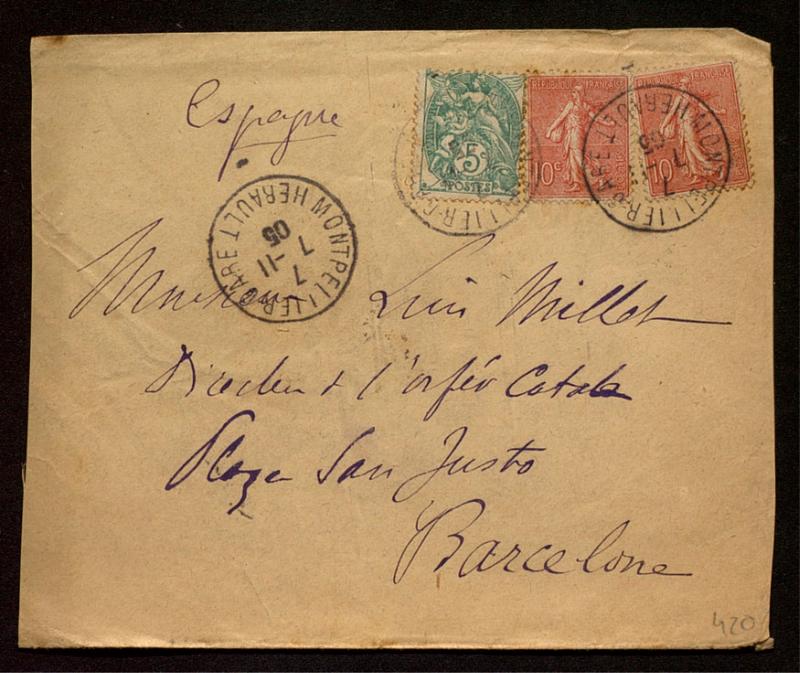 Espagne
5c
POSTES
REPUBLIQUE FRANÇAISE
10c
10c
MONTPELLIER-GARE HERAULT
7
7 -11
05
MONTPELLIER-GARE HERAULT
7
7
05
Monsieur Luis Millet
Directeur de l'orfeó Català
Plaza San Justo
Barcelone
420